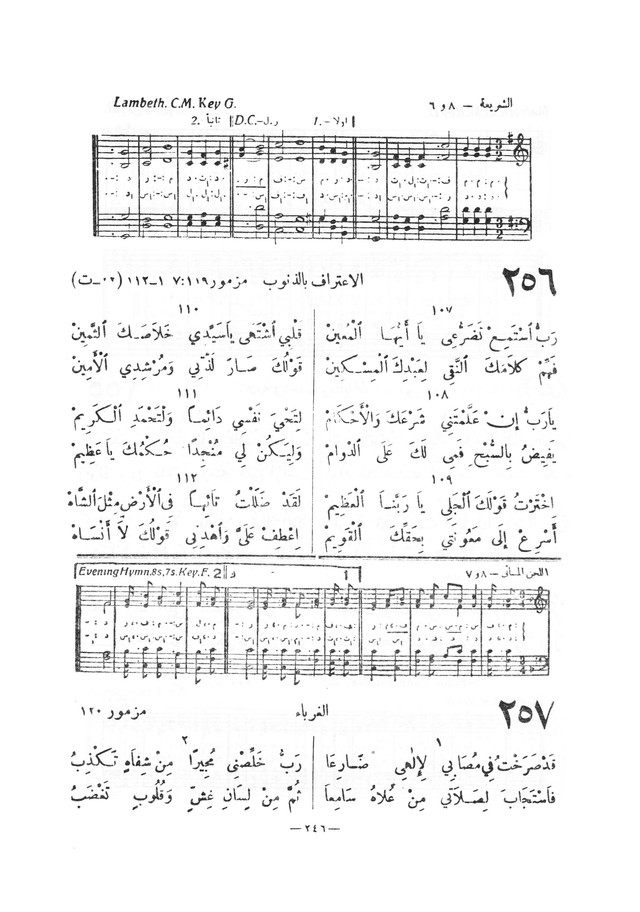 Lambeth. C.M. Key G. الشريعة – ٨ و ٦
2. ثانياً D.C.–ر.ل. 1.– اولا
٢٥٦
الاعتراف بالذنوب مزمور ١١٩:٧ ١–١١٢ (٠٢–ت)
١٠٧
رَبُّ ٱسْتَمِعْ تَضَرُّعِى يَا أَيُّهَا ٱلْمُعِينْ
فَهِّمْ كَلَامَكَ ٱلنَّقِى لِعَبْدِكَ ٱلْمِسْكِينْ
١٠٨
يَارَبُّ إِنْ عَلَّمْتَنِي شَرْعَكَ وَالْأَحْكَامْ
يَفِيضُ بِالسُّبْحِ فَمِي لَكَ عَلَى ٱلدَّوَامْ
١٠٩
اِخْتَرْتُ قَوْلَكَ ٱلْجَلِي يَا رَبَّنَا ٱلْعَظِيمْ
أَسْرِعْ إِلَى مَعُونَتِي بِحَقِّكَ ٱلْقَوِيمْ
١١٠
قَلْبِي ٱشْتَهَى يَاسَيِّدِي خَلَاصَكَ ٱلثَّمِينْ
قَوْلُكَ صَارَ لَذَّتِي وَمُرْشِدِي ٱلْأَمِينْ
١١١
لِتَحْيَ نَفْسِي دَائِمًا وَلْتَحْمَدِ ٱلْكَرِيمْ
وَلِيَكُنْ لِي مُنْجِدًا حُكْمُكَ يَاعَظِيمْ
١١٢
لَقَدْ ضَلَلْتُ تَائِهًا فِى ٱلْأَرْضِ مِثْلَ ٱلشَّاهْ
اِعْطِفْ عَلَيَّ وَٱهْدِنِي قَوْلُكَ لَا أَنْسَاهْ
Evening Hymn. 8s, 7s. Key. F. 2 د 1 اللحن المسائى – ٨ و ٧
٢٥٧
الغرباء مزمور ١٢٠
١
قَدْ صَرَخْتُ فِي مُصَابِي لِإِلٰهِى ضَارِعَا
فَاسْتَجَابَ لِصَلَاتِي مِنْ عُلَاهُ سَامِعَا
٢
رَبُّ خَلِّصْنِي مُجِيرًا مِنْ شِفَاهٍ تَكْذِبُ
ثُمَّ مِنْ لِسَانِ غِشٍّ وَقُلُوبٍ تَغْضَبُ
—٢٤٦—